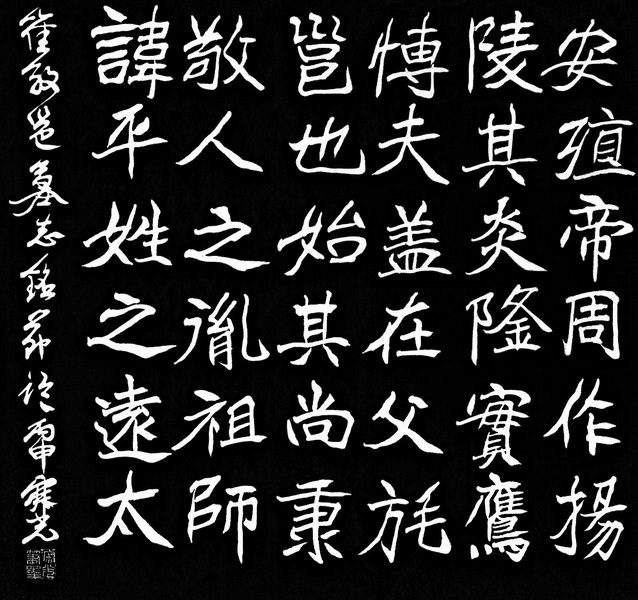 諱敬邕愽陵安
平人也夫其殖
姓之始盖炎帝
之胤其在隆周
遠祖尚父實作
太師秉旄鷹揚
崔敬邕墓志銘節臨